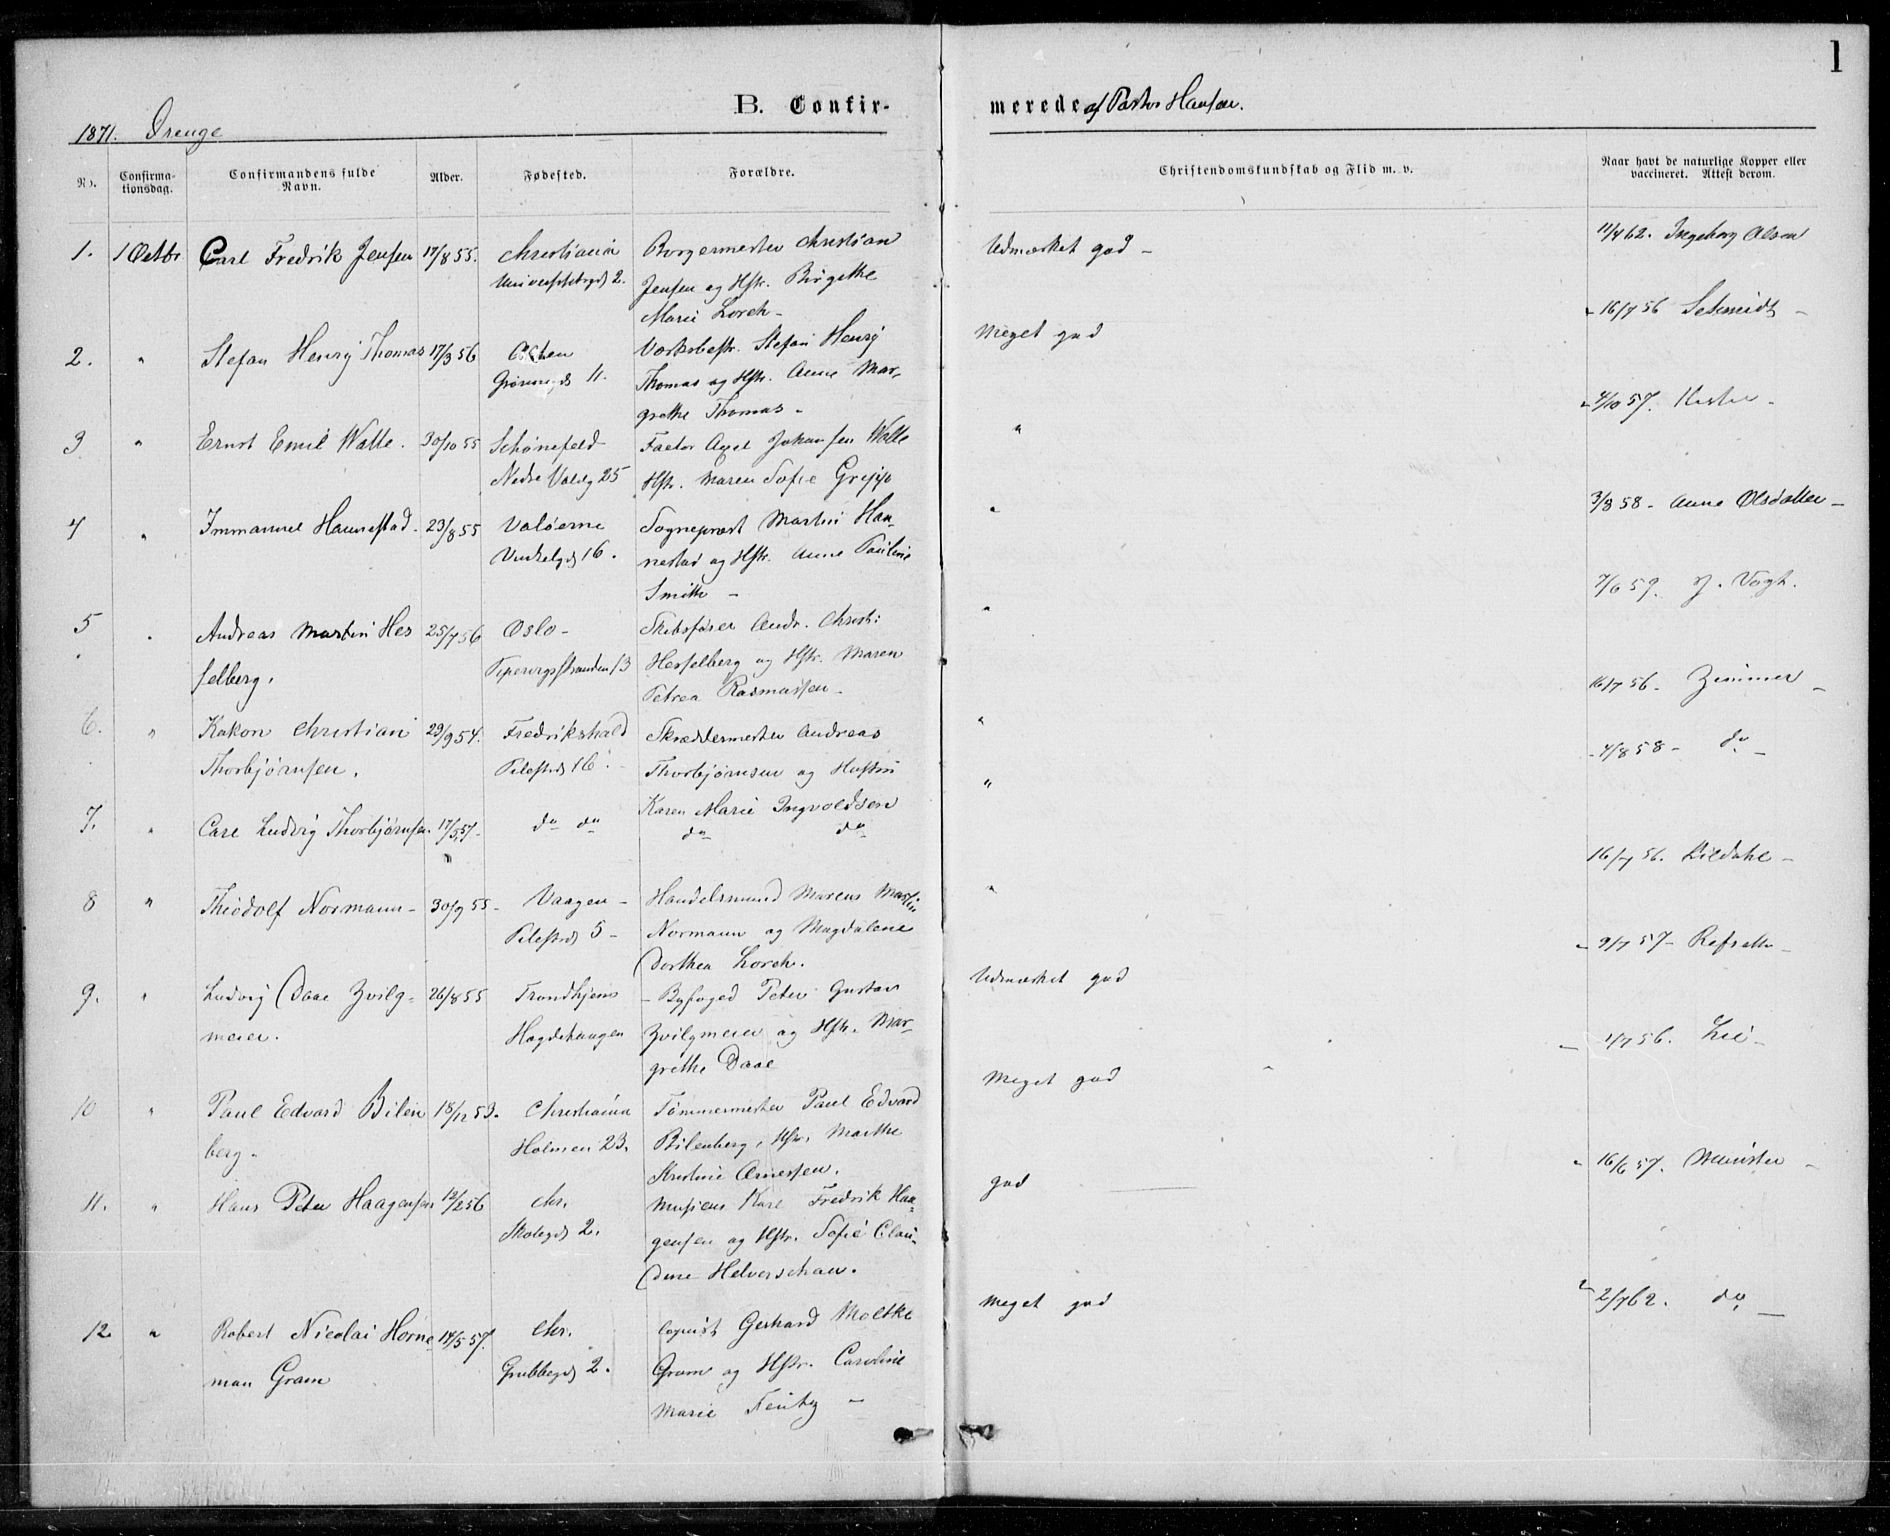 1
B. Confir-
merede af Pastor Hansen.
1871. Drenge
No.
Confirma-
tionsdag.
Confirmandens fulde
Navn.
Alder.
Fødested.
Forældre.
Christendomskundskab og Flid m. v.
Naar havt de naturlige Kopper eller
vaccineret. Attest derom.
1. 1 Octbr Carl Fredrik Jensen 17/8 55. Christiania Borgermester Christian Udmærket god – 11/4 62. Ingeborg Olsen
Universitetsgd 2. Jensen og Hstr. Birgitte
Marie Lorch –
2. " Stefan Henry Thomas 17/3 56 Værksbestr. Stefan Henry Meget god 16/7 56 Schmidt –
Grønnegd 11. Thomas og Hstr. Anne Mar-
grethe Thomas –
3 " Ernst Emil Walle. 30/10 55 Schønefeld Factor Axel Johansen Walle " 4/10 57.
Nedre Voldg 25 Hstr. Maren Sofie Gripp
4 " Immanuel Hannestad. 23/8 55 Valøerne Sogneprest Martin Han- " 3/8 58 – Anne Olsdatter –
16. nestad og Hstr. Anne Pauline
Smith –
5 " Andreas Martin Hes 25/7 56 Oslo – Skibsfører Andr. Christ: " 7/6 59. J. Vogt.
selberg. Pipervigsstranden 13 Hesselberg og Hstr. Maren
Petrea Rasmussen –
6. " Hakon Christian 29/9 54. Fredrikshald Skræddermester Andreas " 16/7 56 – Zimmer –
Thorbjørnsen. Pilestrd 16. Thorbjørnsen og Hustru
Karen Marie Ingvoldsen
7. " Carl Ludvig Thorbjørnsen. 17/5 57 – do do do do " – 4/8 58 – do –
8 " Thiodolf Normann – 30/9 55 – Vaagen – Handelsmand Marcus Martin " 16/7 56. Kildahl –
Pilestrd 5 – Normann og Magdalene
Dorthea Lorch.
9. " Ludvig Daae Zvilg- 26/8 55 Trondhjem – Byfoged Peter Gustav Udmærket god 9/7 57 –
meier. Hægdehaugen Zvilgmeier og Hstr. Mar-
grethe Daae
10 " Paul Edvard Bilen 18/12 53. Christiania Tømmermester Paul Edvard Meget god – 1/7 56. Lie –
berg. Holmen 23. Bilenberg, Hstr. Marthe
Kristine Arnesen.
11. " Hans Peter Haagensen 12/2 56 Chr. Musicus Karl Fredrik Haa- god 16/6 57. Münster –
Skolegd 2. gensen og Hstr. Sofie Clau-
dine Helverschau.
12. " Robert Nicolai Horne 14/5 57. Chr. Copist Gerhard Moltke Meget god 2/7 62. do –
man Gram Grubbegd 2. Gram og Hstr. Caroline
Marie –